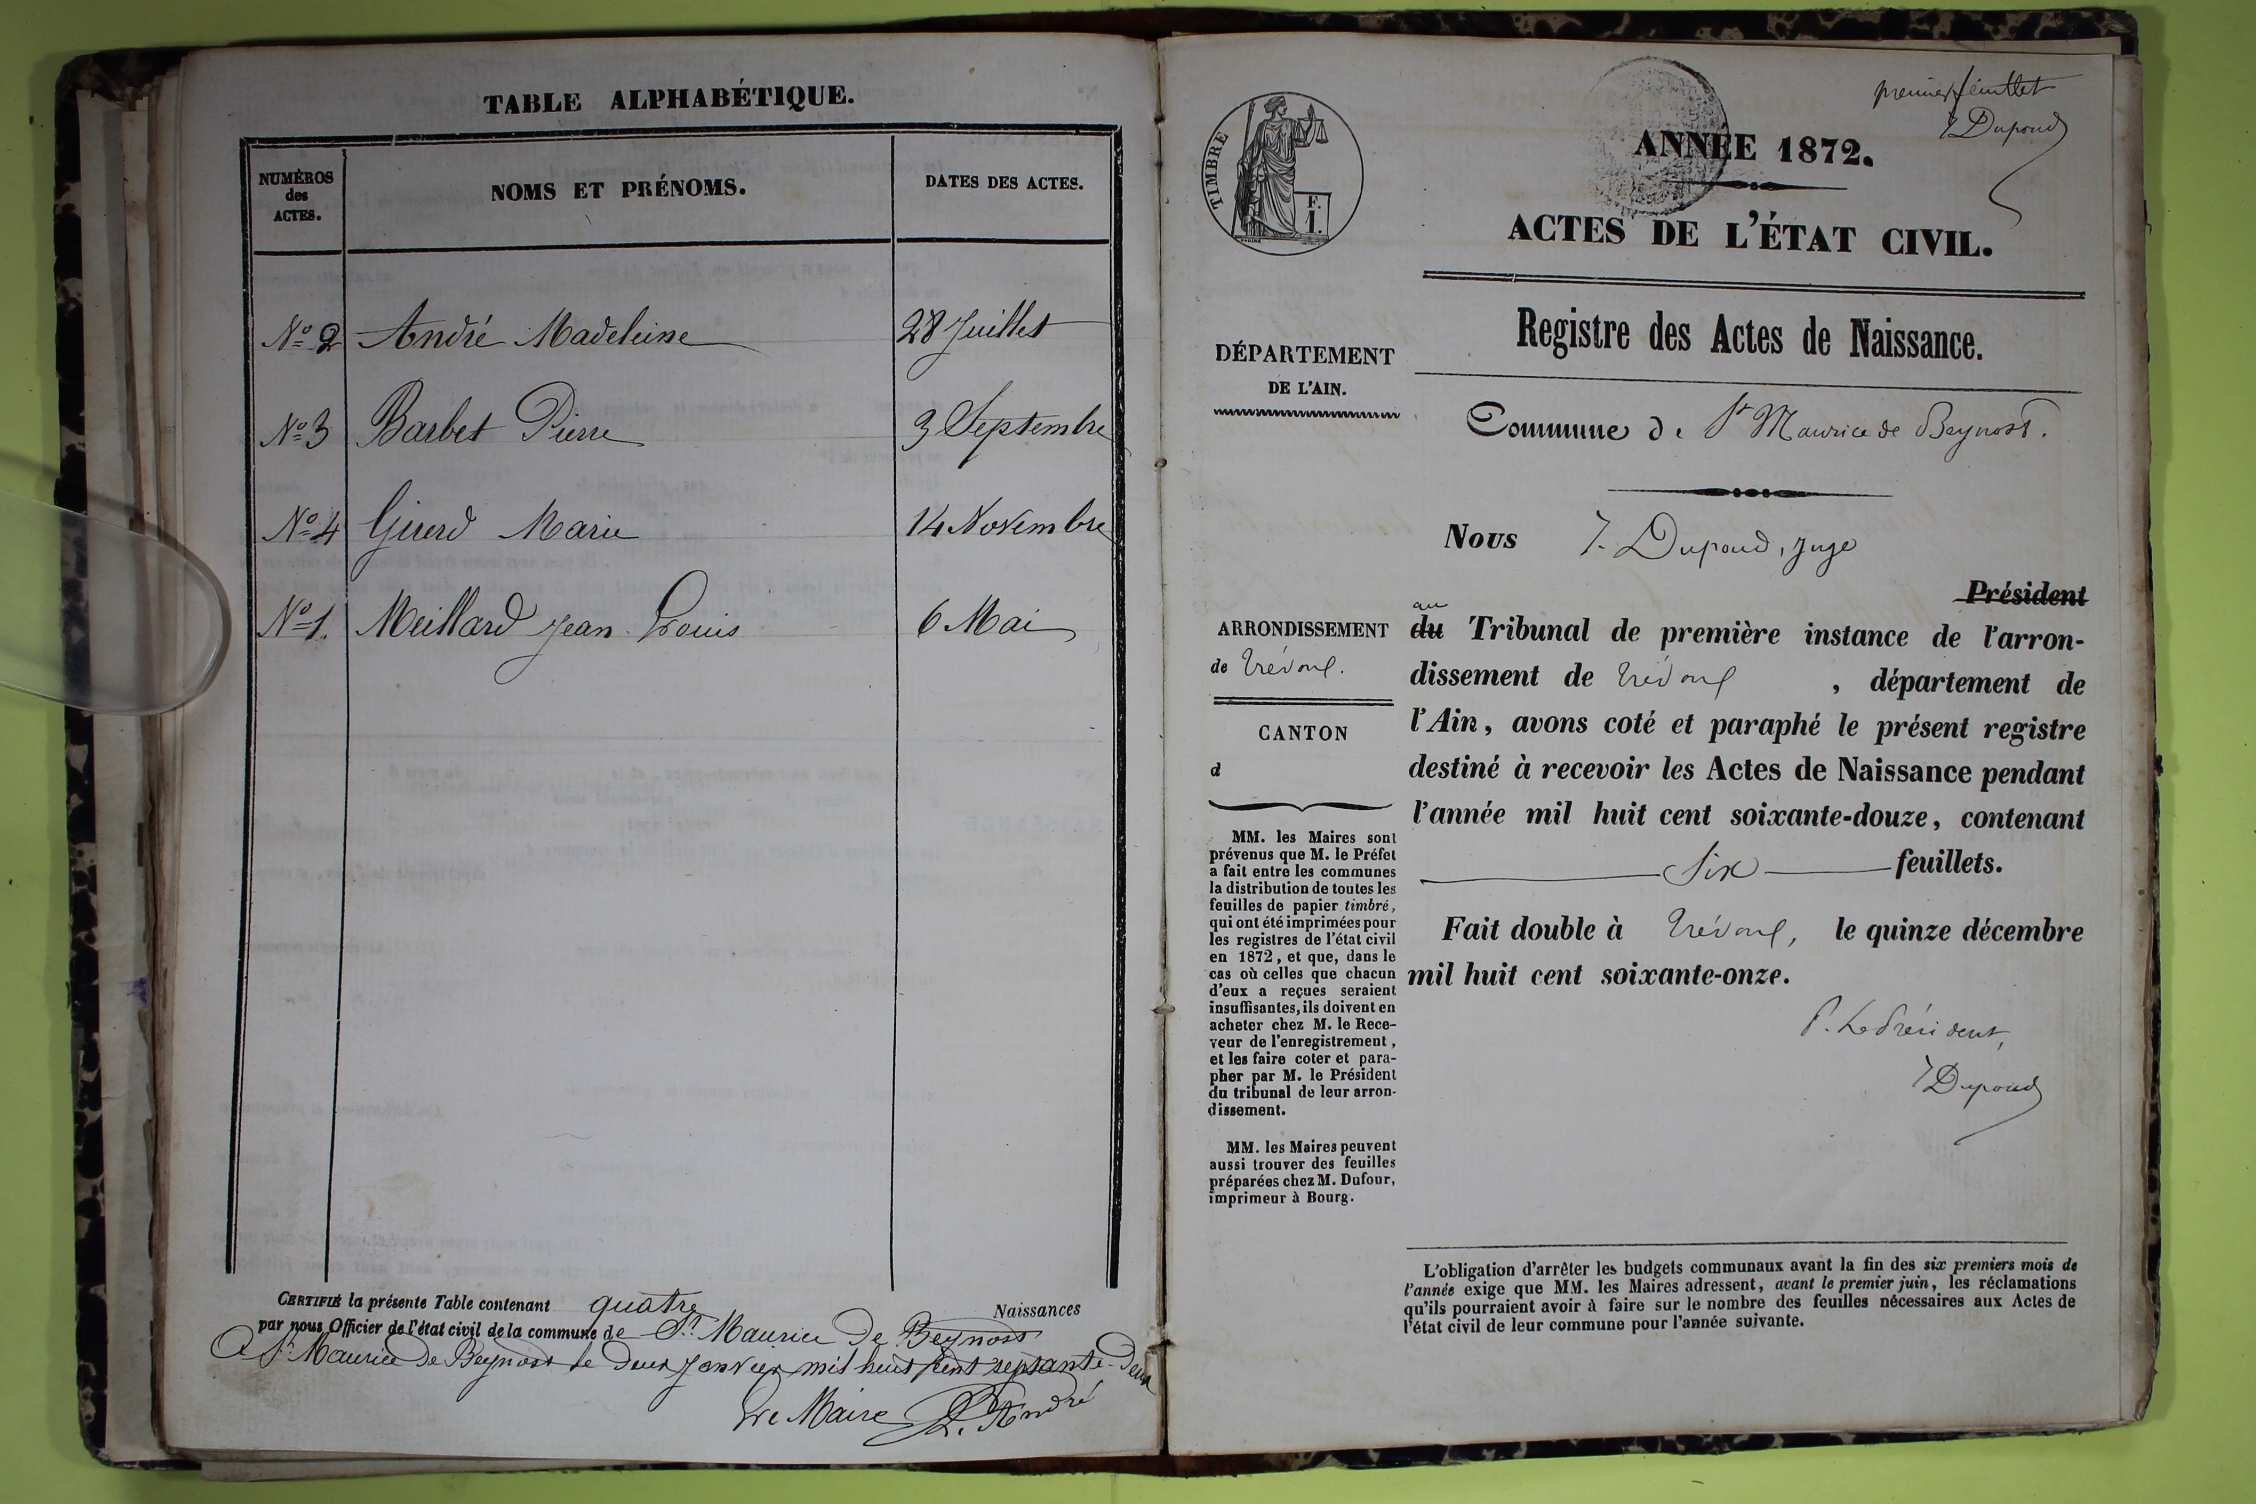 TABLE ALPHABÉTIQUE.
NUMÉROS des ACTES.
NOMS ET PRÉNOMS.
DATES DES ACTES.
Nº 2 André Madeleine 28 Juillet
Nº 3 Barbet Pierre 3 Septembre
Nº 4 Girerd Marie 14 Novembre
Nº 1. Meillard Jean Louis 6 Mai
CERTIFIÉ la présente Table contenant quatre Naissances
par nous Officier de l'état civil de la commune de St Maurice de Beynost
A St Maurice de Beynost le deux Janvier mil huit cent septante-deux
Le Maire André
premier feuillet
Dupoud
TIMBRE
F.
1.
ANNÉE 1872.
ACTES DE L'ÉTAT CIVIL.
Registre des Actes de Naissance.
DÉPARTEMENT
DE L'AIN.
Commune de St Maurice de Beynost.
Nous J. Dupoud, juge
Président
au
du Tribunal de première instance de l'arron-
dissement de Trévoux, département de
l'Ain, avons coté et paraphé le présent registre
destiné à recevoir les Actes de Naissance pendant
l'année mil huit cent soixante-douze, contenant
six feuillets.
Fait double à Trévoux, le quinze décembre
mil huit cent soixante-onze.
P. Le Président,
Dupoud
ARRONDISSEMENT
de Trévoux.
CANTON
d
MM. les Maires sont
prévenus que M. le Préfet
a fait entre les communes
la distribution de toutes les
feuilles de papier timbré,
qui ont été imprimées pour
les registres de l'état civil
en 1872, et que, dans le
cas où celles que chacun
d'eux a reçues seraient
insuffisantes, ils doivent en
acheter chez M. le Rece-
veur de l'enregistrement,
et les faire coter et para-
pher par M. le Président
du tribunal de leur arron-
dissement.
MM. les Maires peuvent
aussi trouver des feuilles
préparées chez M. Dufour,
imprimeur à Bourg.
L'obligation d'arrêter les budgets communaux avant la fin des six premiers mois de
l'année exige que MM. les Maires adressent, avant le premier juin, les réclamations
qu'ils pourraient avoir à faire sur le nombre des feuilles nécessaires aux Actes de
l'état civil de leur commune pour l'année suivante.